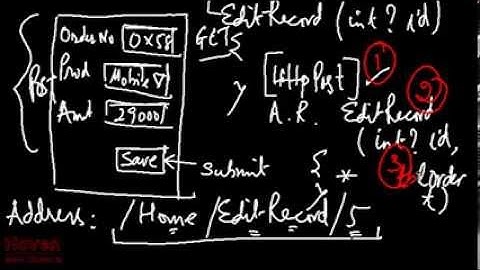 EditRecord (int? id)
Order No 0X58 GETS
Prod Mobile
[HttpPost] 1
A.R. EditRecord 2
Amt 29000/
(int? id,
Save Submit { * 3 order
*)
Address: /Home/EditRecord/5